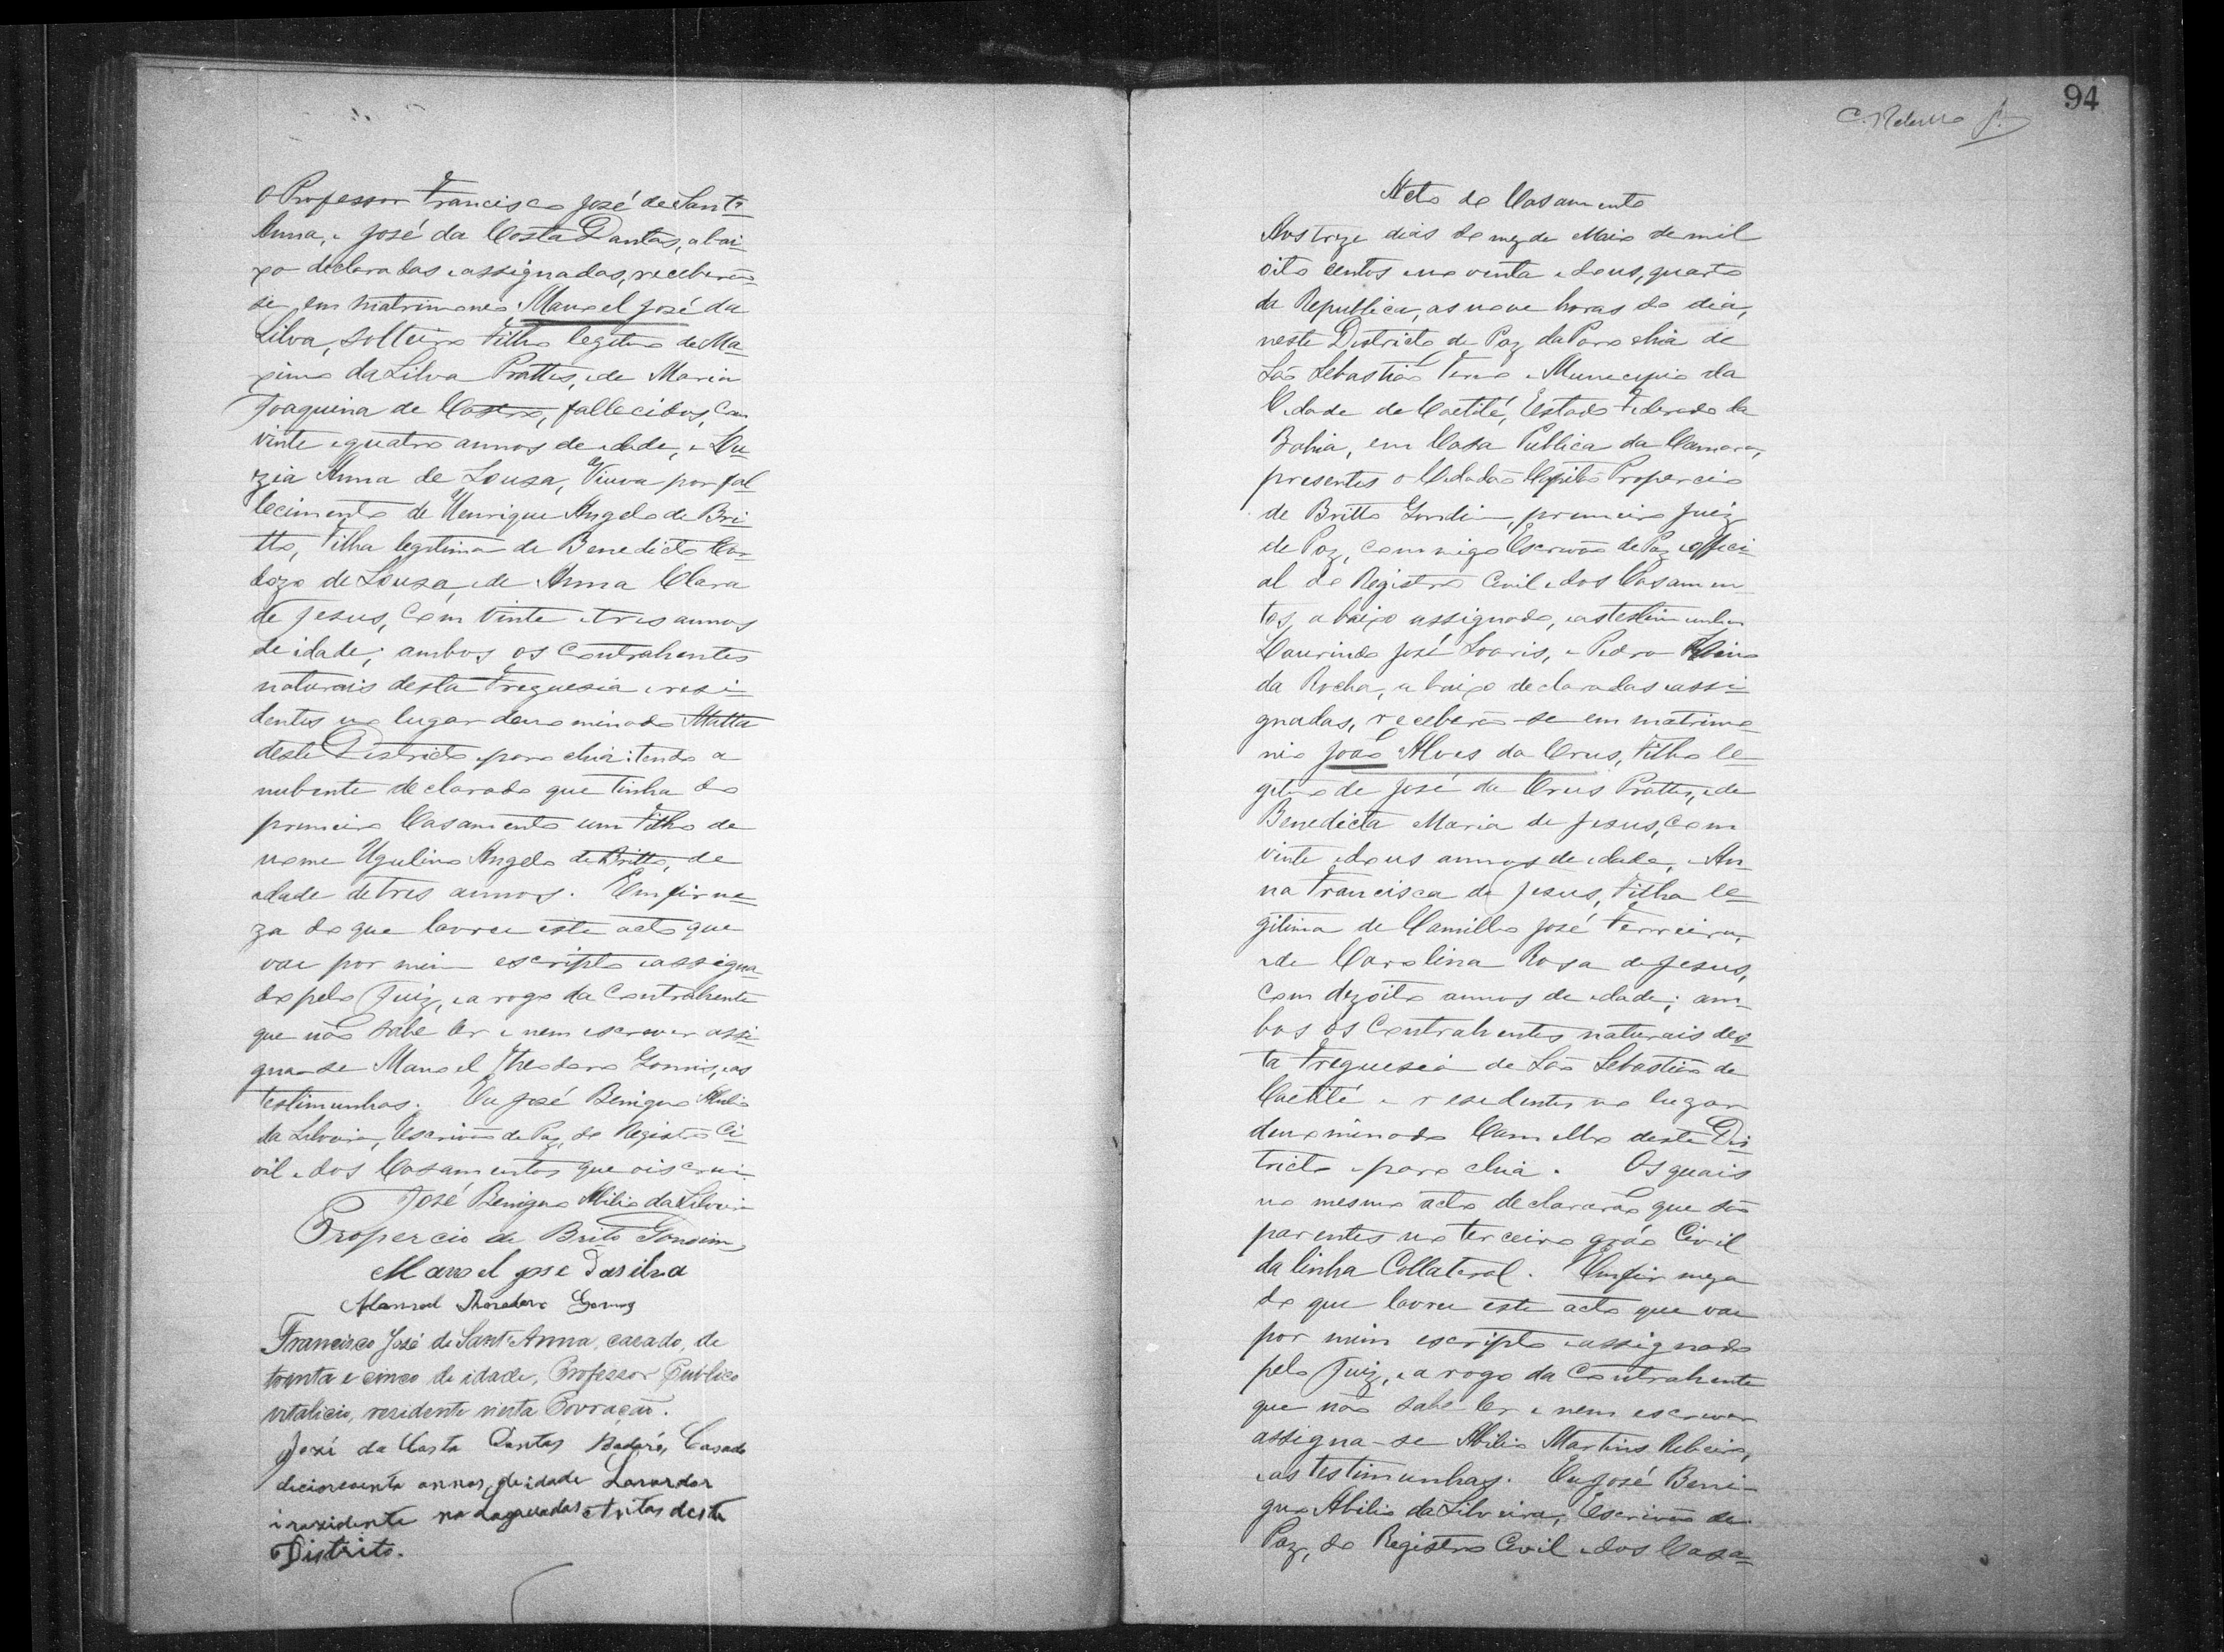 O Professor Francisco José de Sant'
Anna, e José da Costa Dantas, abai-
xo declaradas e assignadas, receberão
se em matrimoneo Manoel José da
Silva, solteiro Filho legitimo de Ma-
ximo da Silva Prattes, e de Maria
Joaquina de Castro, fallecidos, com
vinte e quatro annos de edade, e Lu-
zia Anna de Souza, Viuva por fal-
lecimento de Henrique Angelo de Bri-
tto, Filha legitima de Benedicto Car-
dozo de Souza, e de Anna Clara
de Jesus, com vinte e tres annos
de idade; ambos os Contrahentes
naturais desta Freguezia e resi-
dentes no lugar denominado Matta
deste Districto e parochia: tendo a
nubente declarado que tinha do
primeiro Casamento um Filho de
nome Ugulino Angelo de Britto, de
edade de tres annos. Em firme-
za do que lavrei este acto que
vae por mim escripto e assigna-
do pelo Juiz, e a rogo da Contrahente
que não sabe ler e nem escrever assi-
gna-se Manoel Theodoro Gomes, e as
testimunhas. Eu José Benigno Abilio
da Silveira, Escrivão de Paz, do Registro Ci-
vil e dos Casamentos que o iscrevi.
José Benigno Abilio da Silveira
Propercio de Brito Gondim
Manoel jose Dasilva
Manoel Theodoro Gomes
Francisco José de Sant'Anna, casado, de
trinta e cinco de idade, Professor Publico
vitalicio, rezidente nesta Povoação.
José da Costa Dantas Badaró, Casado
annos, de idade Lavrador
i rezidente na das Antas deste
Distrito.
94
Acto de Casamento
Aos treze dias do mez de Maio de mil
oito centos e noventa e dous, quarto
da Republica, as nove horas do dia,
neste Districto de Paz da Parochia de
São Sebastião Termo e Municipio da
Cidade de Caetité, Estado Federado da
Bahia, em Casa Publica da Camara,
presentes o Cidadão Capitão Propercio
de Britto Gondim, primeiro Juiz
de Paz, commigo Escrivão de Paz e offici-
al do Registro Civil e dos Casamen-
tos, abaixo assignado, e as testimunhas
Laurindo José Soaris, e Pedro
da Rocha, abaixo declaradas e assi-
gnadas, receberão-se em matrimo-
nio João Alves da Crus, Filho le-
gitimo de José da Crus Prattes, e de
Benedicta Maria de Jesus, com
vinte e dous annos de edade, e An-
na Francisca de Jesus, Filha le-
gitima de Camillo José Ferreira,
e de Carolina Rosa de Jesus,
com dezoito annos de edade; am-
bos os Contrahentes naturais des-
ta Freguezia de São Sebastião de
Caetité e residentes no lugar
denominado Camello deste Dis-
tricto e parochia. Os quais
no mesmo acto declararão que são
parentes no terceiro gráo Civil
da linha Collateral. Em firmeza
do que lavrei este acto que vae
por mim escripto e assignado
pelo Juiz, e a rogo da Contrahente
que não sabe ler e nem escrever
assigna-se Abilio Martins Ribeiro,
e as testimunhas. Eu José Beni-
gno Abilio da Silveira, Escrivão de
Paz, do Registro Civil e dos Casa-